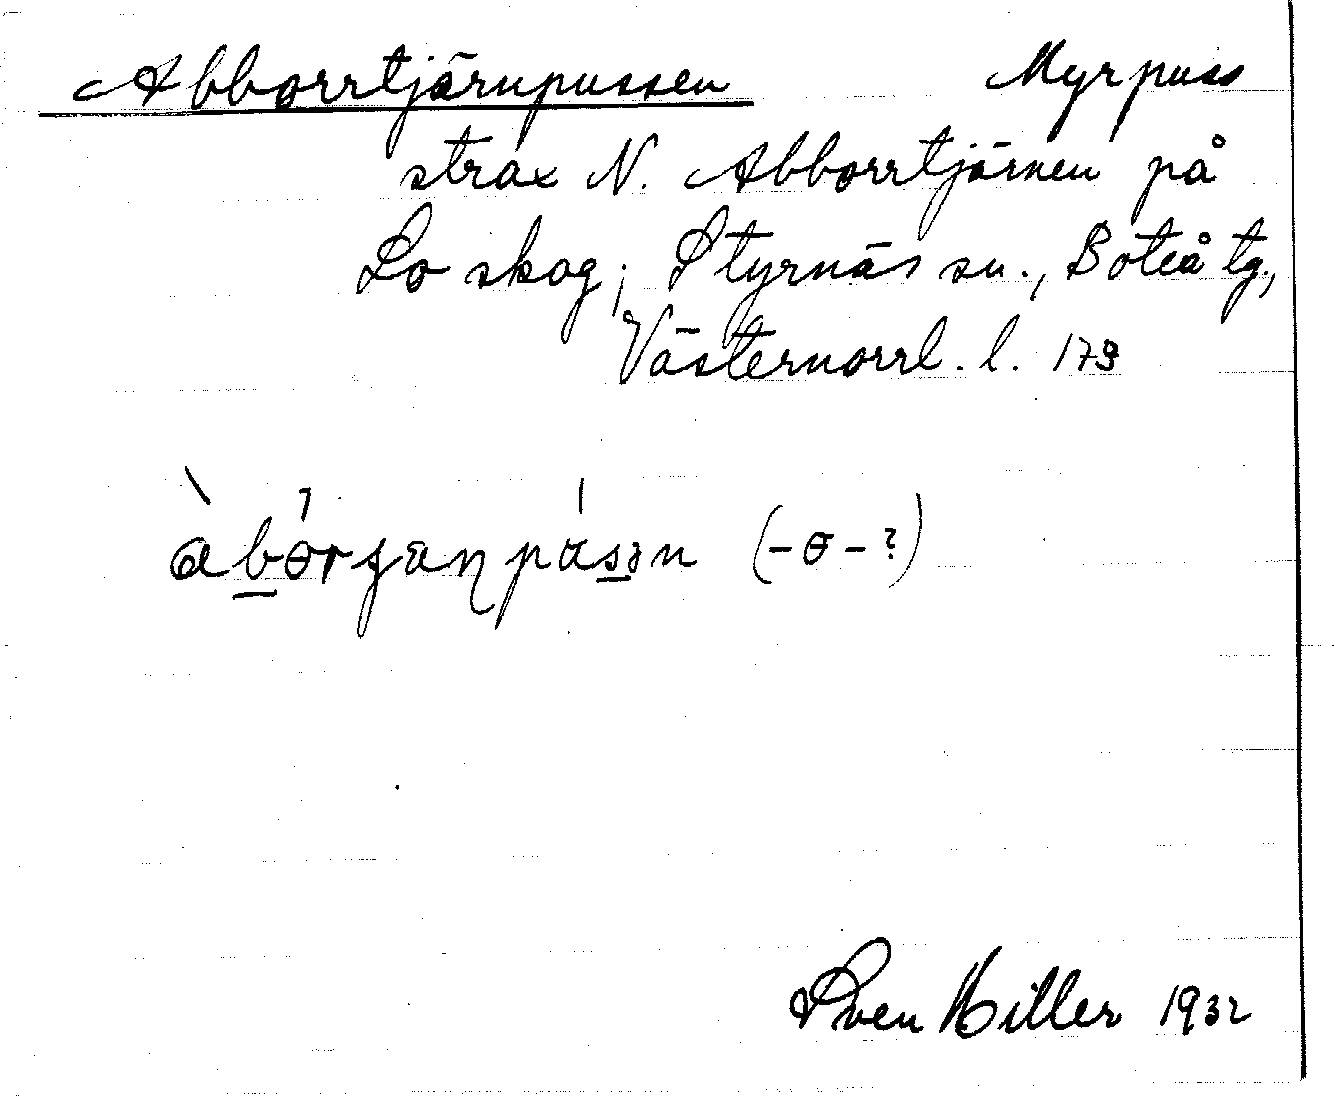 Abborrtjärnpussen Myrpuss
strax N. Abborrtjärnen på
Lo skog; Styrnäs sn., Boteå tg.,
Västernorrl. l. 179
(-ɵ-?)
Sven Hiller 1932